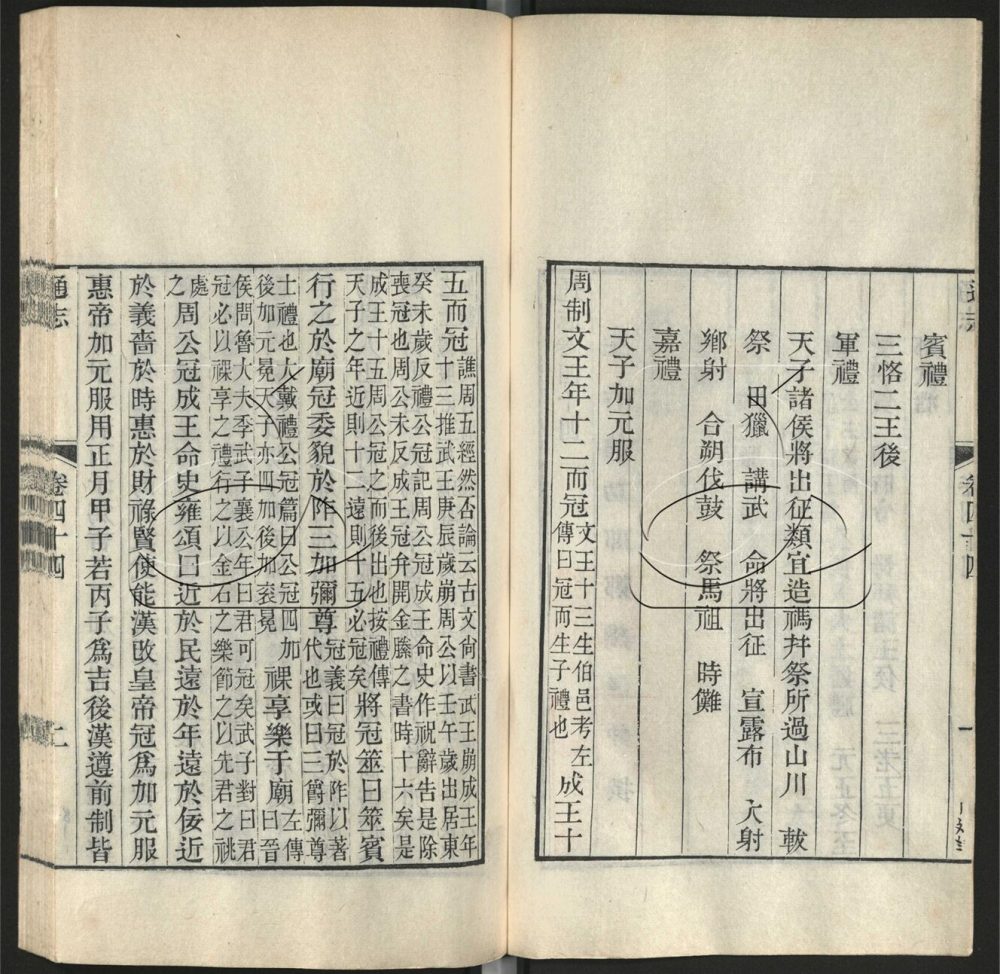 賓禮
三恪二王後
軍禮
天子諸侯將出征類宜造禡幷祭所過山川　軷
祭　田獵　講武　命將出征　宣露布　大射
鄉射　合朔伐鼓　祭馬祖　時儺
嘉禮
天子加元服
周制文王年十二而冠文王十三生伯邑考左傳曰冠而生子禮也成王十
五而冠譙周五經然否論云古文尚書武王崩成王年十三推武王庚辰歲崩周公以壬午歲出居東
癸未歲反禮公冠記周公冠成王命史作祝辭告是除喪冠也周公未反成王冠弁開金縢之書時十六矣是
成王十五周公冠之而後出也按禮傳天子之年近則十二遠則十五必冠矣將冠筮日筮賓
行之於廟冠委貌於阼三加彌尊冠義曰冠於阼以著代也或曰三醮彌尊
士禮也大戴禮公冠篇曰公冠四加後加元冕天子亦四加後加袞冕祼享樂于廟左傳曰晉
侯問魯大夫季武子襄公年曰君可冠矣武子對曰君冠必以祼享之禮行之以金石之樂節之以先君之祧
處之周公冠成王命史雍頌曰近於民遠於年遠於佞近
於義嗇於時惠於財祿賢使能漢改皇帝冠爲加元服
惠帝加元服用正月甲子若丙子爲吉後漢遵前制皆
通志
卷四十四
二